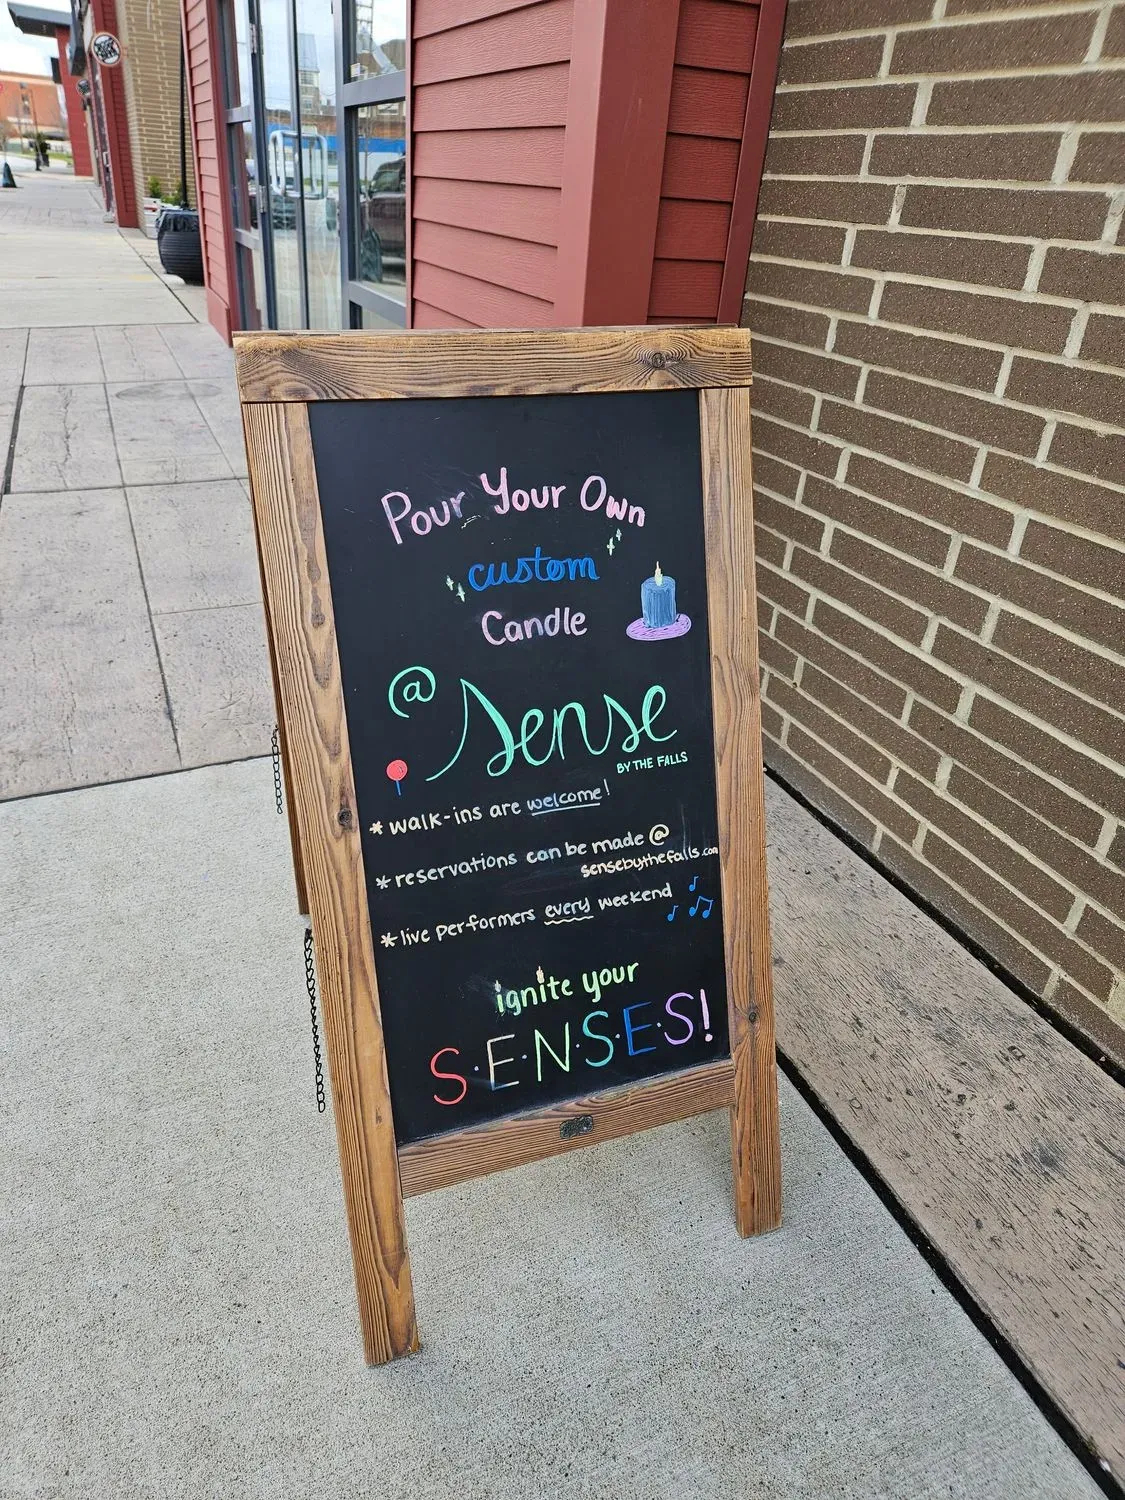 Pour Your Own
custom
Candle
@ Sense
BY THE FALLS
* walk-ins are welcome!
* reservations can be made @
sensebythefalls.com
* live performers every weekend
ignite your
S·E·N·S·E·S!